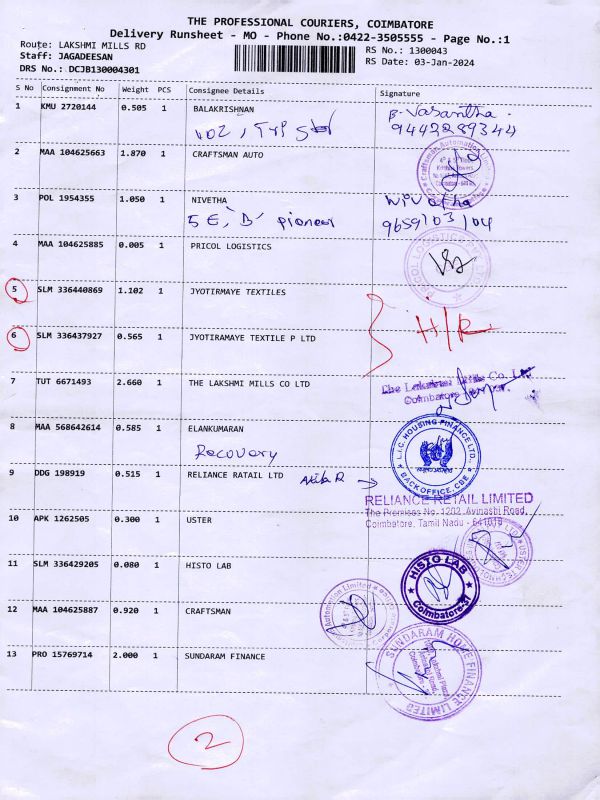 THE PROFESSIONAL COURIERS, COIMBATORE
Delivery Runsheet - MO - Phone No.:0422-3505555 - Page No.:1
Route: LAKSHMI MILLS RD RS No.: 1300043
Staff: JAGADEESAN RS Date: 03-Jan-2024
DRS No.: DCJB130004301
S No Consignment No Weight PCS Consignee Details Signature
1 KMU 2720144 0.505 1 BALAKRISHNAN B. Vasantha.
9442289344
2 MAA 104625663 1.870 1 CRAFTSMAN AUTO
3 POL 1954355 1.050 1 NIVETHA Nivetha
5 E, 'B' pioneer 9659103104
4 MAA 104625885 0.005 1 PRICOL LOGISTICS
5 SLM 336440869 1.102 1 JYOTIRMAYE TEXTILES
H/R
6 SLM 336437927 0.565 1 JYOTIRAMAYE TEXTILE P LTD
7 TUT 6671493 2.660 1 THE LAKSHMI MILLS CO LTD The Lakshmi Mills Co. Ltd
Coimbatore
8 MAA 568642614 0.585 1 ELANKUMARAN
Recovery L.I.C. HOUSING FINANCE LTD.
BACK OFFICE, CBE
9 DDG 198919 0.515 1 RELIANCE RATAIL LTD
RELIANCE RETAIL LIMITED
The Premises No. 1202, Avinashi Road,
Coimbatore, Tamil Nadu - 641018
10 APK 1262505 0.300 1 USTER
11 SLM 336429205 0.080 1 HISTO LAB HISTO LAB
Coimbatore-37
12 MAA 104625887 0.920 1 CRAFTSMAN Automation Limited
13 PRO 15769714 2.000 1 SUNDARAM FINANCE SUNDARAM HOME FINANCE LIMITED
2